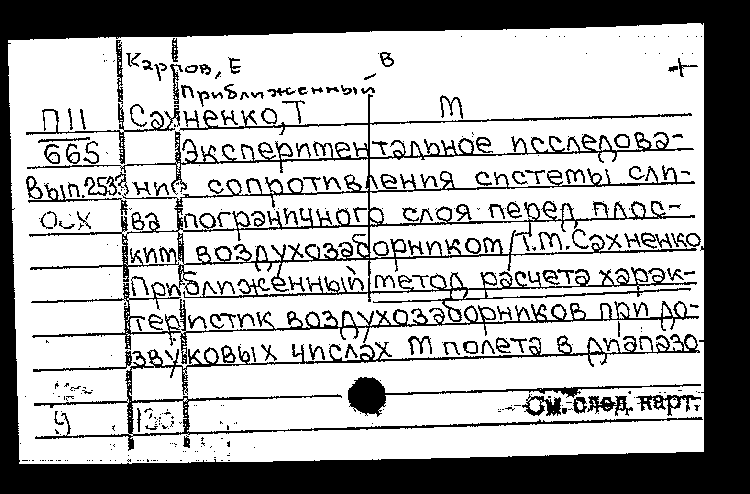 Карпов, Е В
Приближенный
П11 Сахненко, Т М
665 Экспериментальное исследова-
Вып.2533 ние сопротивления системы сли-
ва пограничного слоя перед плос-
ким воздухозаборником/Т.М.Сахненко.
Приближенный метод расчета харак-
теристик воздухозаборников при до-
звуковых числах М полета в диапазо-
У 130 См. след. карт.